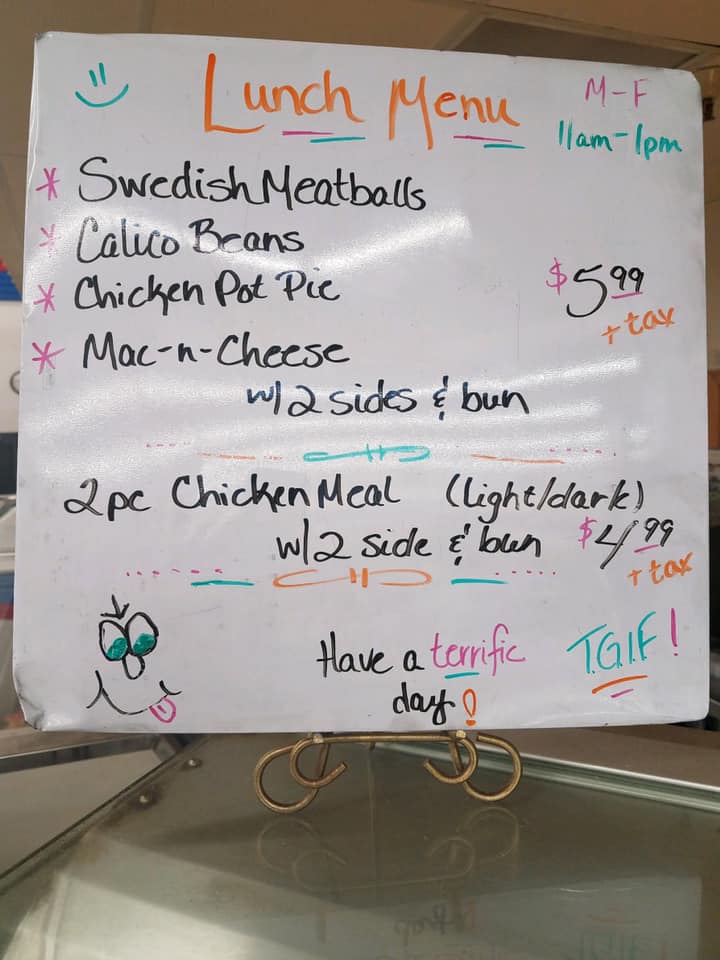 Lunch Menu
M-F
11am-1pm
* Swedish Meatballs
* Calico Beans
* Chicken Pot Pie
$5.99
+ tax
* Mac-n-Cheese
w/2 sides & bun
2pc Chicken Meal (light/dark)
w/2 side & bun $4.99
+ tax
Have a terrific
day!
T.G.I.F!